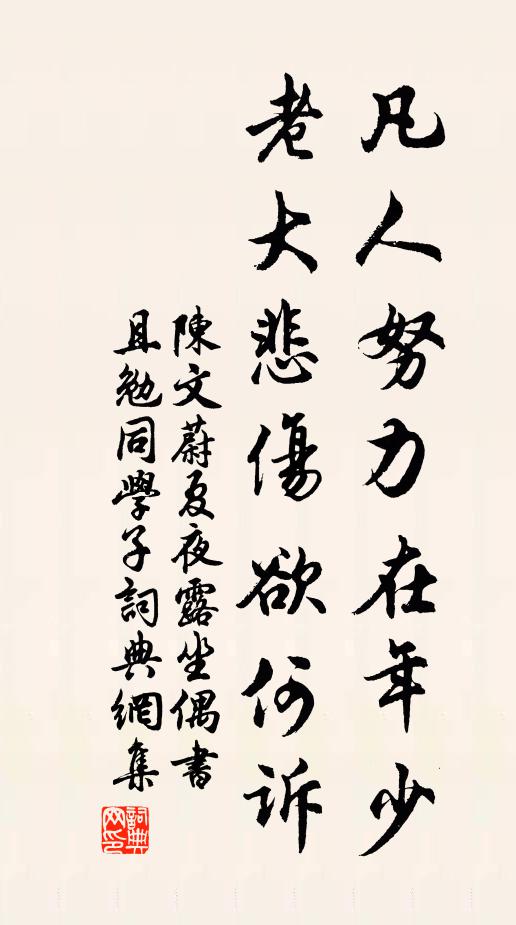 凡人努力在年少
老大悲傷欲何訴
陳文蔚夏夜露坐偶書
且勉同學子詞典網集
詞典網印